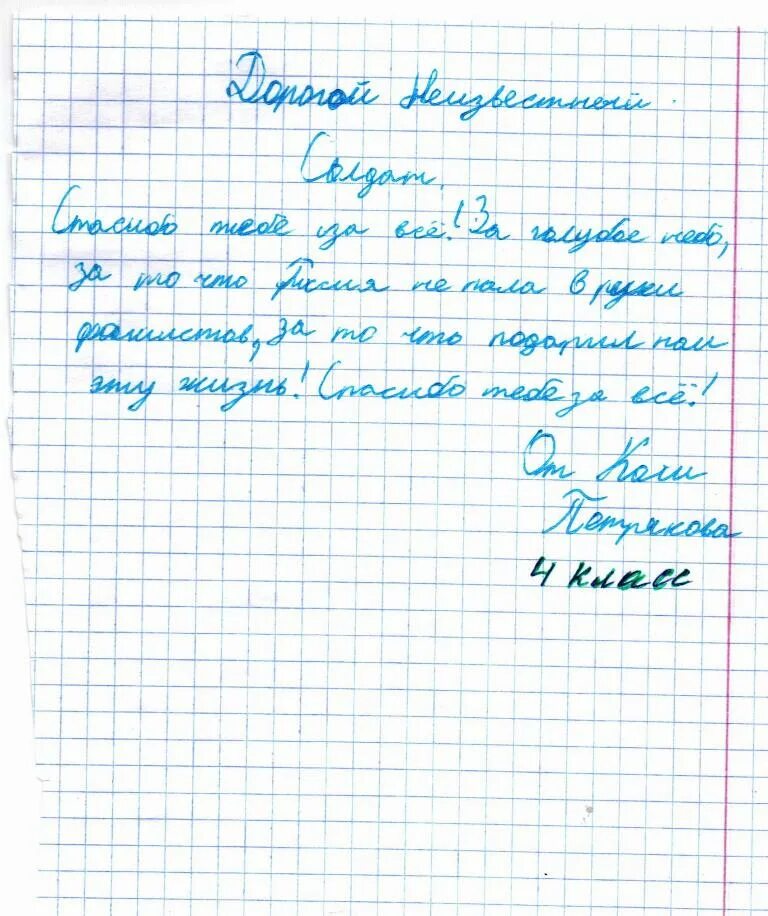 Дорогой Неизвестный
Солдат.
Спасибо тебе за всё! За голубое небо,
за то что Россия не пала в руки
фашистов, за то что подарил нам
эту жизнь! Спасибо тебе за всё!
От Коли
Петрякова
4 класс